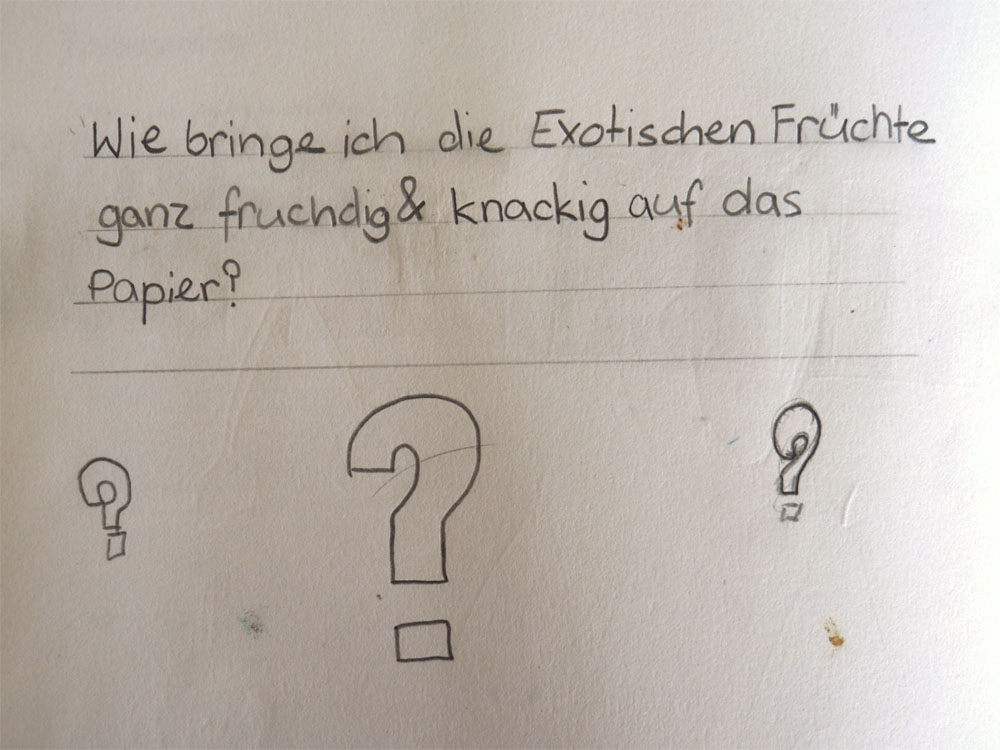 Wie bringe ich die Exotischen Früchte
ganz fruchdig & knackig auf das
Papier?
? ? ?